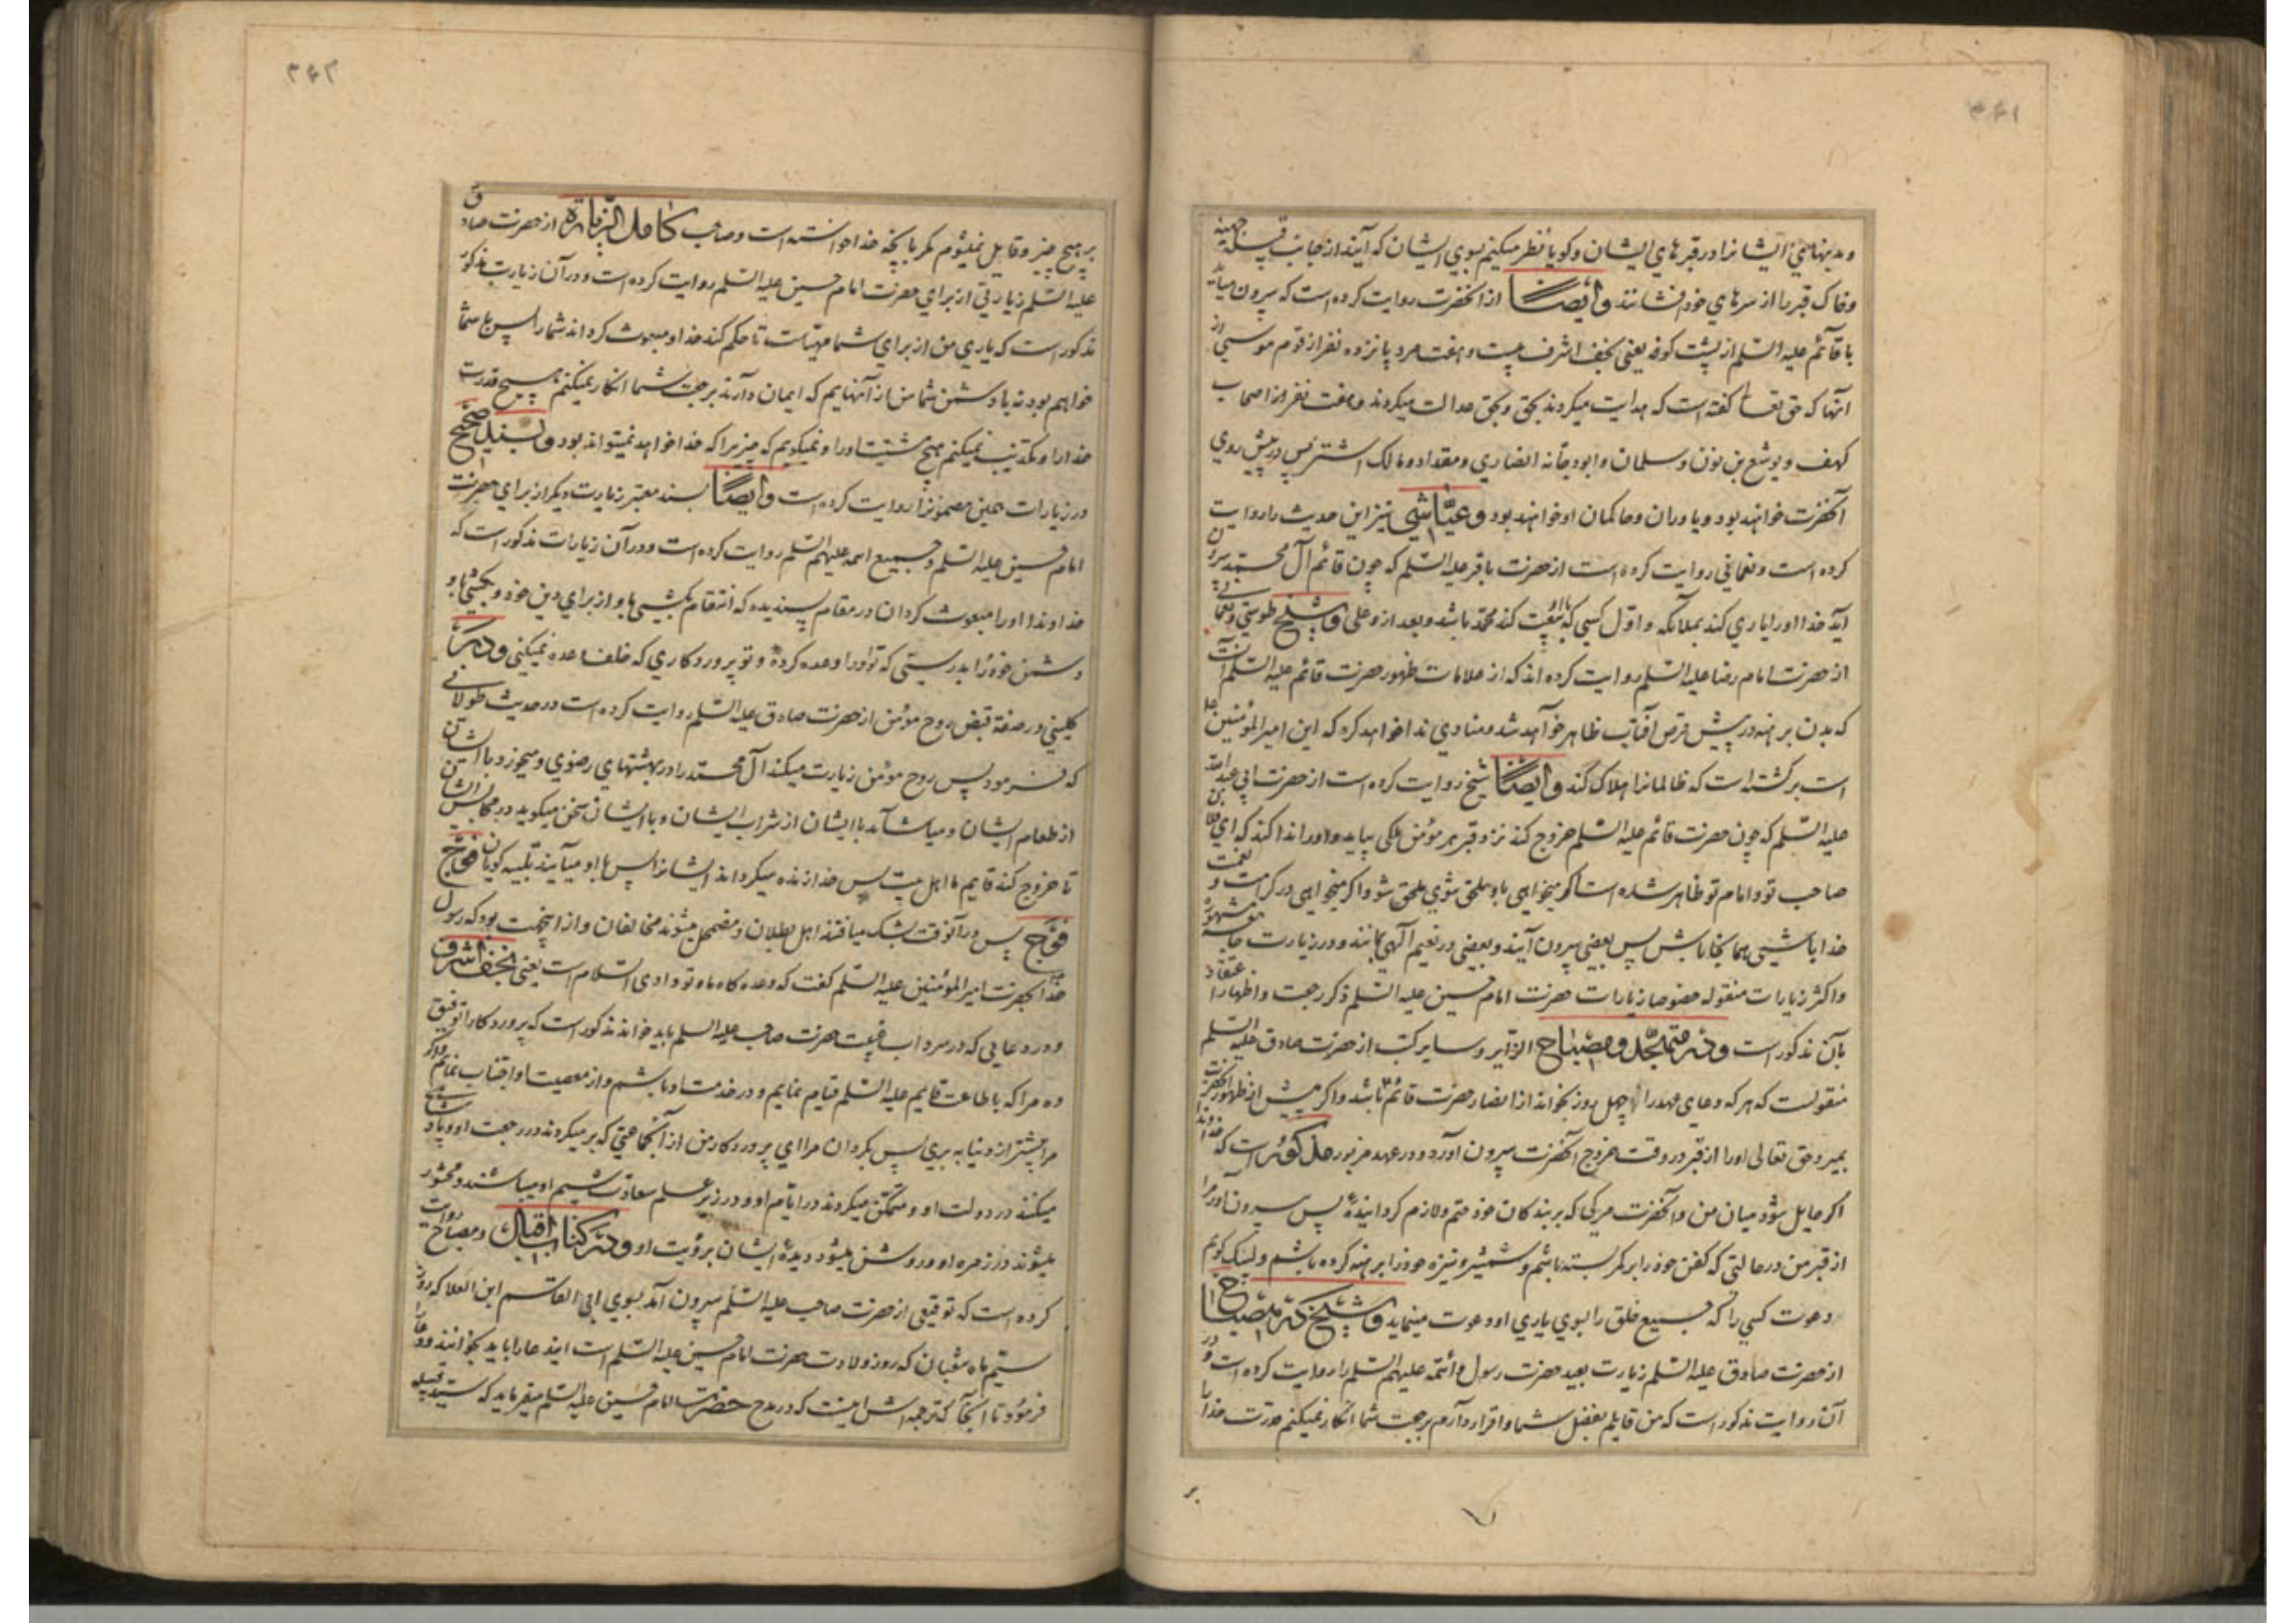 ۳۶۱
وبدنهای ایشانرا در قبرهای ایشان و کویا نظر میکنم بسوی ایشان که آیند از جانب قبیله جهینه
وخاک قبر را از سرهای خود افشانند وایضًا از آنحضرت روایت کرده است که بیرون میآیند
با قائم علیه السّلم از پشت کوفه یعنی نجف اشرف بیست وهفت مرد پانزده نفر از قوم موسی از
آنها که حق تعالی کفته است که هدایت میکردند بحق وبحق عدالت میکردند وهفت نفر از اصحاب
کهف ویوشع بن نون وسلمان وابودجانه انصاری ومقداد ومالک اشتر پس در پیش روی
آنحضرت خواهند بود ویاوران وحاکمان او خواهند بود وعیّاشی نیز این حدیث را روایت
کرده است ونعمانی روایت کرده است از حضرت باقر علیه السّلم که چون قائم آل محمّد بیرون
آید خدا او را یاری کند بملائکه واوّل کسی که با او بیعت کند محمّد باشد وبعد از و علی وشیخ طوسی ونعمانی
از حضرت امام رضا علیه السّلم روایت کرده اند که از علامات ظهور حضرت قائم علیه السّلم آنست
که بدن برهنه در پیش قرص آفتاب ظاهر خواهد شد ومنادی ندا خواهد کرد که این امیر المؤمنین
است برکشته است که ظالمانرا هلاک کند وایضًا شیخ روایت کرده است از حضرت ابی عبد الله
علیه السّلم که چون حضرت قائم علیه السّلم خروج کند نزد قبر هر مؤمن ملکی بیاید واو را ندا کند که ای فلان بن
صاحب تو وامام تو ظاهر شده است اکر میخواهی باو ملحق شوی ملحق شو واکر میخواهی در کرامت ونعمت
خدا باشی همانجا باش پس بعضی بیرون آیند وبعضی در نعیم الهی بمانند ودر زیارت جامعه مشهوره
واکثر زیارات منقوله خصوصا زیارات حضرت امام حسین علیه السّلم ذکر رجعت واظهار اعتقاد
بآن مذکور است ودر متهجّد ومصباح الزایر وسایر کتب از حضرت صادق علیه السّلم
منقولست که هر که دعای عهد را چهل روز بخواند از انصار حضرت قائم باشد واکر پیش از ظهور آنحضرت
بمیرد حق تعالی او را از قبر در وقت خروج آنحضرت بیرون آورد ودر عهد مزبور مذکور است که خداوندا
اکر حایل شود میان من وآنحضرت مرکی که بر بندکان خود حتم ولازم کردانیدۀ پس بیرون آور مرا
از قبر من در حالتی که کفن خود را بر کمر بسته باشم وشمشیر ونیزه خود را برهنه کرده باشم ولبیک کویم
دعوت کسی را که جمیع خلق را بسوی یاری او دعوت مینماید وشیخ در مصباح
از حضرت صادق علیه السّلم زیارت بعید حضرت رسول وائمّه علیهم السّلم را روایت کرده است ودر
آن روایت مذکور است که من قایلم بفضل شما واقرار دارم برجعت شما انکار نمیکنم قدرت خدا را
بر
۳۶۲
بر هیچ چیز وقایل نمیشوم مکر بآنچه خدا خواسته است وصاحب کامل الزّیاره از حضرت صادق
علیه السّلم زیارتی از برای حضرت امام حسین علیه السّلم روایت کرده است ودر آن زیارت مذکور
مذکور است که یاری من از برای شما مهیّاست تا حکم کند خدا ومبعوث کرداند شما را پس با شما
خواهم بود نه با دشمن شما من از آنهایم که ایمان دارند برجعت شما انکار نمیکنم هیچ قدرت
خدا را وتکذیب نمیکنم هیچ مشیّت او را ونمیکویم که چیزیرا که خدا خواهد نمیتواند بود وبسند صحیح
در زیارات همین مضمونرا روایت کرده است وایضًا بسند معتبر زیارت دیکر از برای حضرت
امام حسین علیه السّلم وجمیع ائمه علیهم السّلم روایت کرده است ودر آن زیارات مذکور است که
خداوندا او را مبعوث کردان در مقام پسندیده که انتقام بکشی باو از برای دین خود وبکشی باو
دشمن خود را بدرستی که تو او را وعده کردۀ وتو پروردکاری که خلف وعده نمیکنی ودیکر
کلینی در صفة قبض روح مؤمن از حضرت صادق علیه السّلم روایت کرده است در حدیث طولانی
که فرمود پس روح مؤمن زیارت میکند آل محمّد را در بهشتهای رضوی ومیخورد با ایشان
از طعام ایشان ومیاشامد با ایشان از شراب ایشان وبا ایشان سخن میکوید در مجالس ایشان
تا خروج کند قایم ما اهل بیت پس خدا زنده میکرداند ایشانرا پس با او میآیند تلبیه کویان فوج
فوج پس در آنوقت بشک میافتند اهل بطلان ومضمحل میشوند مخالفان واز اینجهت بود که رسول
خدا بحضرت امیر المؤمنین علیه السّلم کفت که وعده کاه ما وتو وادی السّلام است یعنی نجف اشرف
ودر دعایی که در سرداب غیبت حضرت صاحب علیه السلم باید خواند مذکور است که پروردکارا توفیق
ده مرا که باطاعت قایم علیه السّلم قیام نمایم ودر خدمت او باشم واز معصیت او اجتناب نمایم واکر
مرا پیشتر از دنیا به بری پس بکردان مرا ای پروردکار من از آنجماعتی که بر میکردند در رجعت او وپادشاهی
میکنند در دولت او ومتمکّن میکردند در ایّام او ودر زیر علم سعادت شیم او میباشند ومحشور
میشوند در زمره او وروشن میشود دیدۀ ایشان برؤیت او ودر کتاب اقبال ومصباح روایت
کرده است که توقیعی از حضرت صاحب علیه السّلم بیرون آمد بسوی ابی القاسم ابن العلا که روز
سیّم ماه شعبان که روز ولادت حضرت امام حسین علیه السّلم است ایندعا را باید بخوانید ودعا
فرمود تا آنجا که ترجمه اش اینست که در مدح حضرت امام حسین علیه السّلم میفرماید که سیّد قبیله